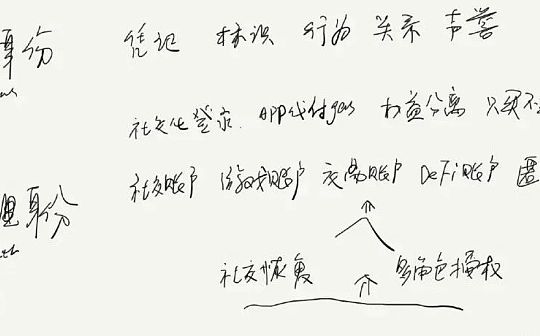 身份 凭记 标识 行为 关系 声誉
社交化登录 APP代付gas 权益分离 只买不
社交账户 游戏账户 交易账户 DeFi账户 匿
身份
社交恢复 多角色授权